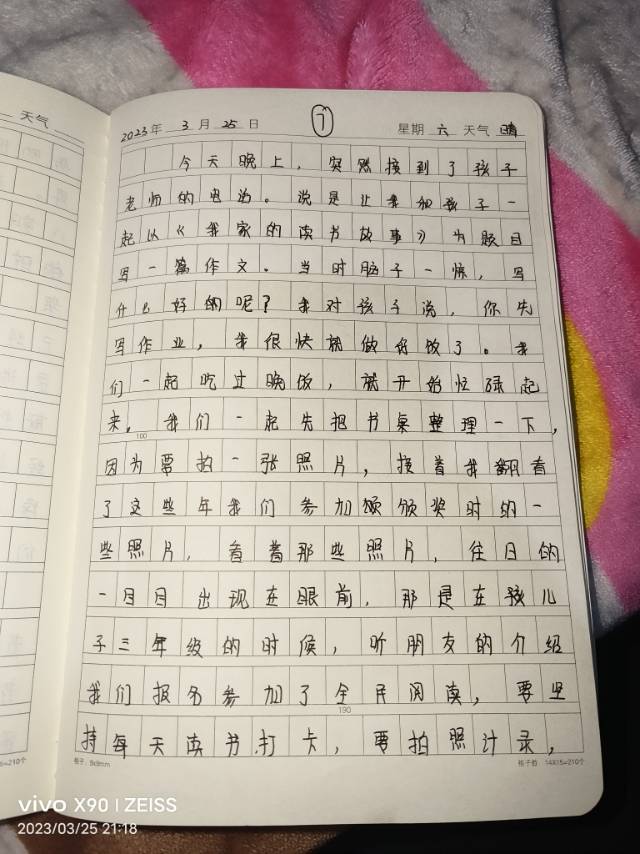 天气
2023年 3月 25日 ⑦ 星期 六 天气 晴
今天晚上，突然接到了孩子
老师的电话。说是让我和孩子一
起以《我家的读书故事》为题目
写一篇作文。当时脑子一懵，写
什么好的呢？我对孩子说，你先
写作业，我很快就做好饭了。我
们一起吃过晚饭，就开始忙碌起
来。我们一起先把书桌整理一下，
100
因为要拍一张照片，接着我翻看
了这些年我们参加颁奖时的一
些照片，看着那些照片，往日的
一目目出现在眼前，那是在孩儿
子三年级的时候，听朋友的介绍
我们报名参加了全民阅读，要坚
190
持每天读书打卡，要拍照计录，
格子：9x9mm
格子数 14X15=210个
5=210个
vivo X90 | ZEISS
2023/03/25 21:18